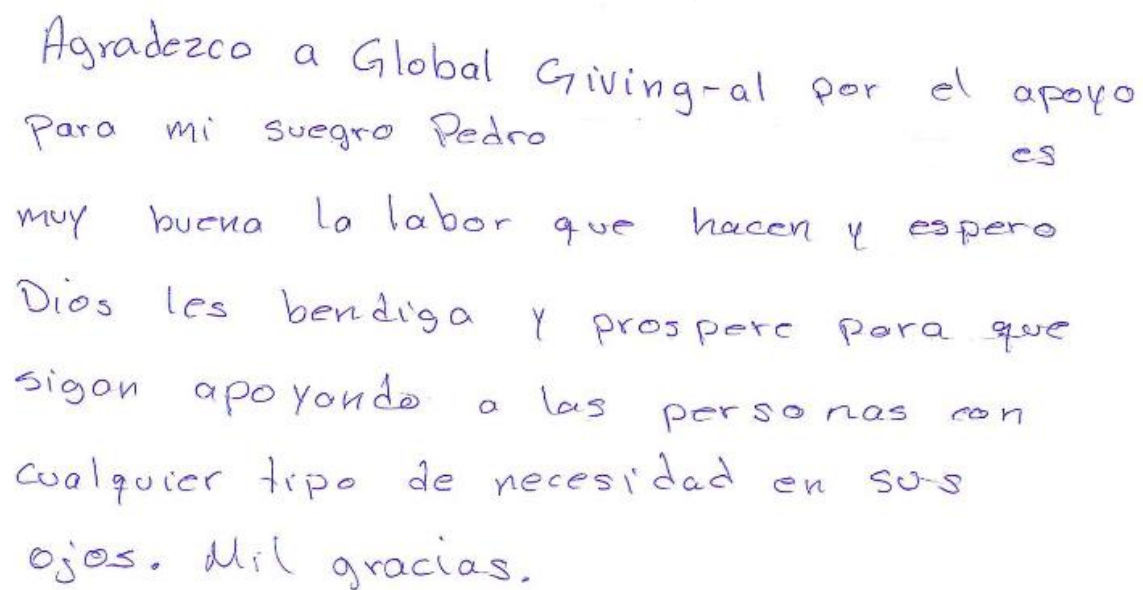 Agradezco a Global Giving-al por el apoyo
para mi suegro Pedro es
muy buena la labor que hacen y espero
Dios les bendiga y prospere para que
sigan apoyando a las personas con
cualquier tipo de necesidad en sus
ojos. Mil gracias.